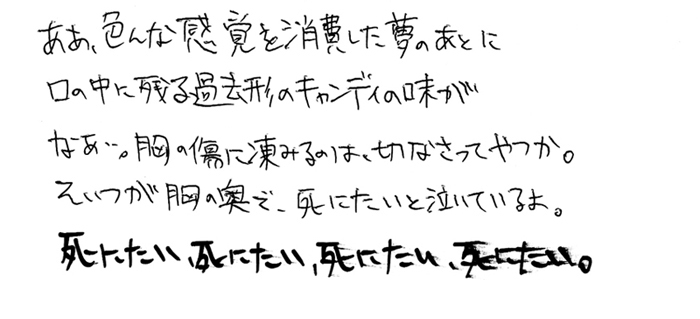 ああ、色んな感覚を消費した夢のあとに
口の中に残る過去形のキャンディの味が
なあ…。胸の傷に凍みるのは、切なさってやつか。
そいつが胸の奥で、死にたいと泣いているよ。
死にたい、死にたい、死にたい、死にたい。